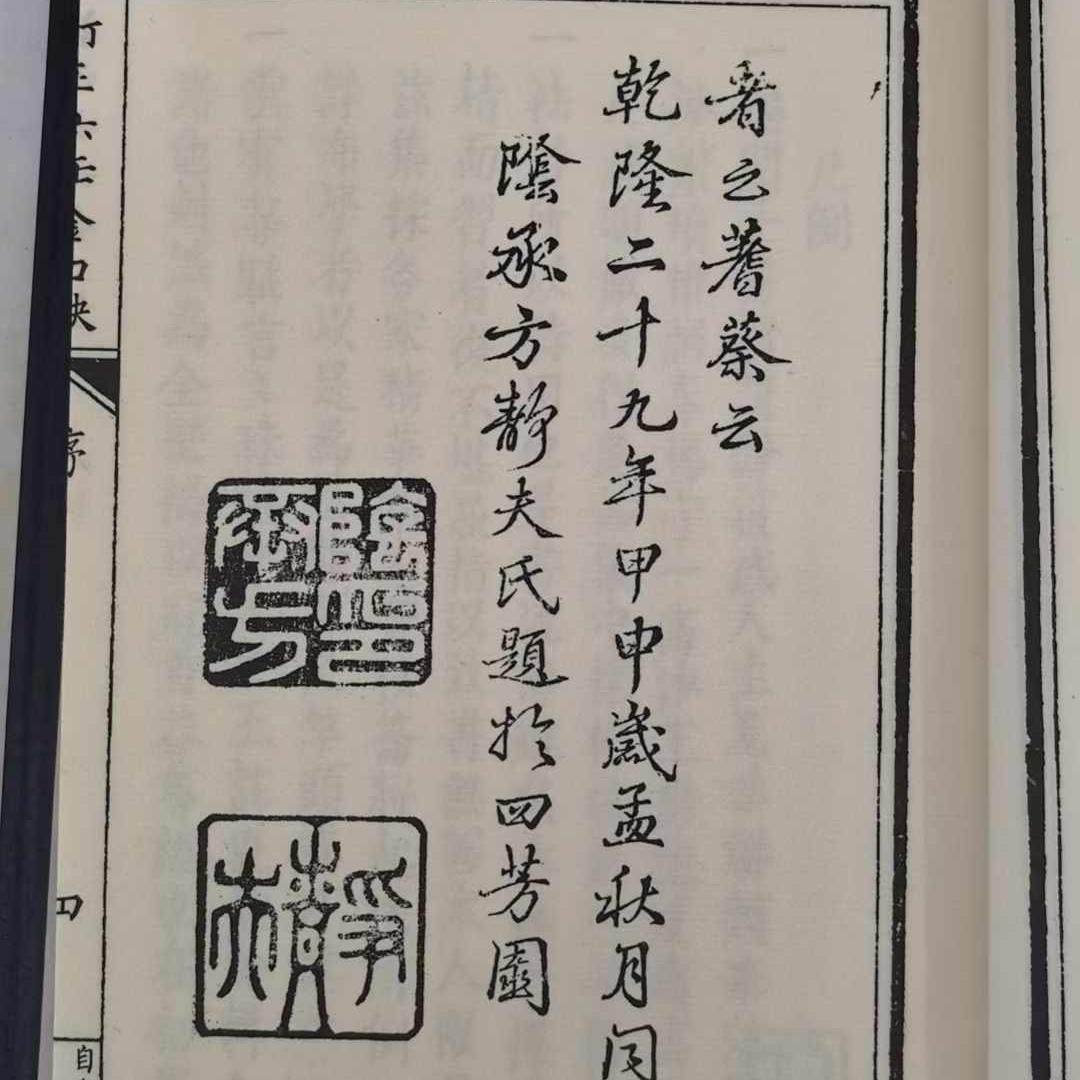 者之蓍蔡云
乾隆二十九年甲申歲孟秋月
陰承方靜夫氏題於四芳園
陰印承方
靜夫
訂正六壬金口訣
序
四
自